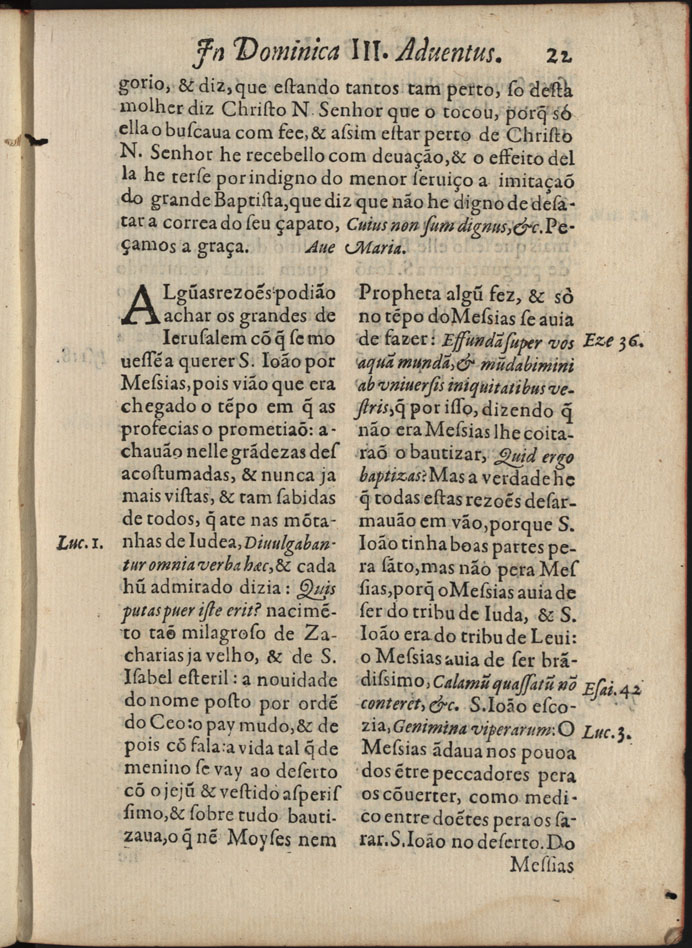 In Dominica III. Aduentus. 22
gorio, & diz, que eſtando tantos tam perto, ſo deſta
molher diz Chriſto N. Senhor que o tocou, porq̃ só
ella o buſcaua com fee, & aſsim eſtar perto de Chriſto
N. Senhor he recebello com deuação, & o effeito del
la he terſe por indigno do menor ſeruiço a imitaçaõ
do grande Baptiſta, que diz que não he digno de deſa-
tar a correa do ſeu çapato, Cuius non ſum dignus, &c. Pe-
çamos a graça. Aue Maria.
ALgũas rezoẽs podião
achar os grandes de
Ieruſalem cõ q̃ ſe mo
ueſſẽ a querer S. Ioão por
Meſsias, pois vião que era
chegado o tẽpo em q̃ as
profecias o prometiaõ: a-
chauão nelle grãdezas deſ
acoſtumadas, & nunca ja
mais viſtas, & tam ſabidas
de todos, q̃ ate nas mõta-
Luc. 1. nhas de Iudea, Diuulgaban-
tur omnia verba hæc, & cada
hũ admirado dizia: Quis
putas puer iſte erit? nacimẽ-
to taõ milagroſo de Za-
charias ja velho, & de S.
Iſabel eſteril: a nouidade
do nome poſto por ordẽ
do Ceo: o pay mudo, & de
pois cõ fala: a vida tal q̃ de
menino ſe vay ao deſerto
cõ o jejũ & veſtido aſperiſ
ſimo, & ſobre tudo bauti-
zaua, o q̃ nẽ Moyſes nem
Propheta algũ fez, & sò
no tẽpo do Meſsias ſe auia
de fazer: Effundã ſuper vos Eze 36.
aquã mundã, & mũdabimini
ab vniuerſis iniquitatibus ve-
ſtris, q̃ por iſſo, dizendo q̃
não era Meſsias lhe coita-
raõ o bautizar, Quid ergo
baptizas? Mas a verdade he
q̃ todas eſtas rezoẽs deſar-
mauão em vão, porque S.
Ioão tinha boas partes pe-
ra ſãto, mas não pera Meſ
ſias, porq̃ o Meſsias auia de
ſer do tribu de Iuda, & S.
Ioão era do tribu de Leui:
o Meſsias auia de ſer brã-
diſsimo, Calamũ quaſſatũ nõ Eſai. 42
conteret, &c. S. Ioão eſco-
zia, Genimina viperarum: O Luc. 3.
Meſsias ãdaua nos pouoa
dos ẽtre peccadores pera
os cõuerter, como medi-
co entre doẽtes pera os ſa-
rar. S. Ioão no deſerto. Do
Meſsias